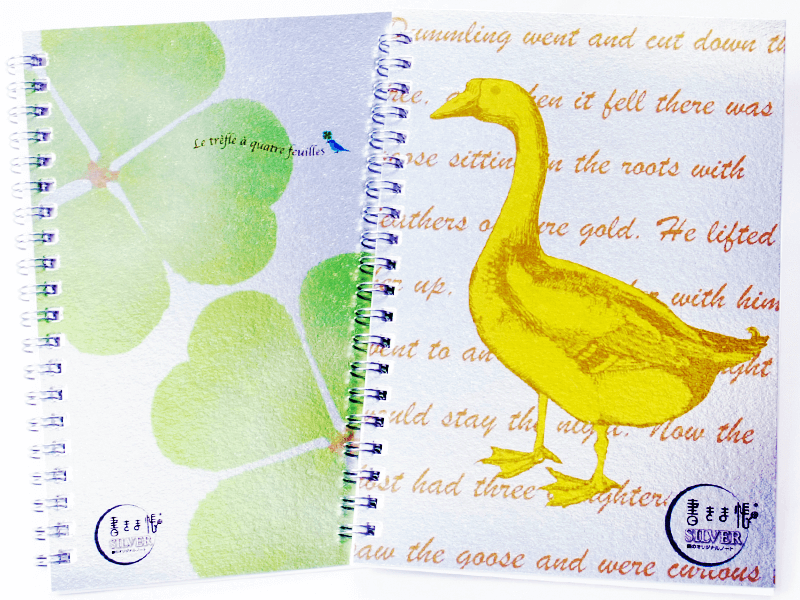 Le trèfle à quatre feuilles
書きま帳
SILVER
Dummling went and cut down th
when it fell there was
sitting on the roots with
feathers of pure gold. He lifted
her up, with him
went to an
would stay the night. Now the
had three
saw the goose and were curious
書きま帳
SILVER
紙のオリジナルノート